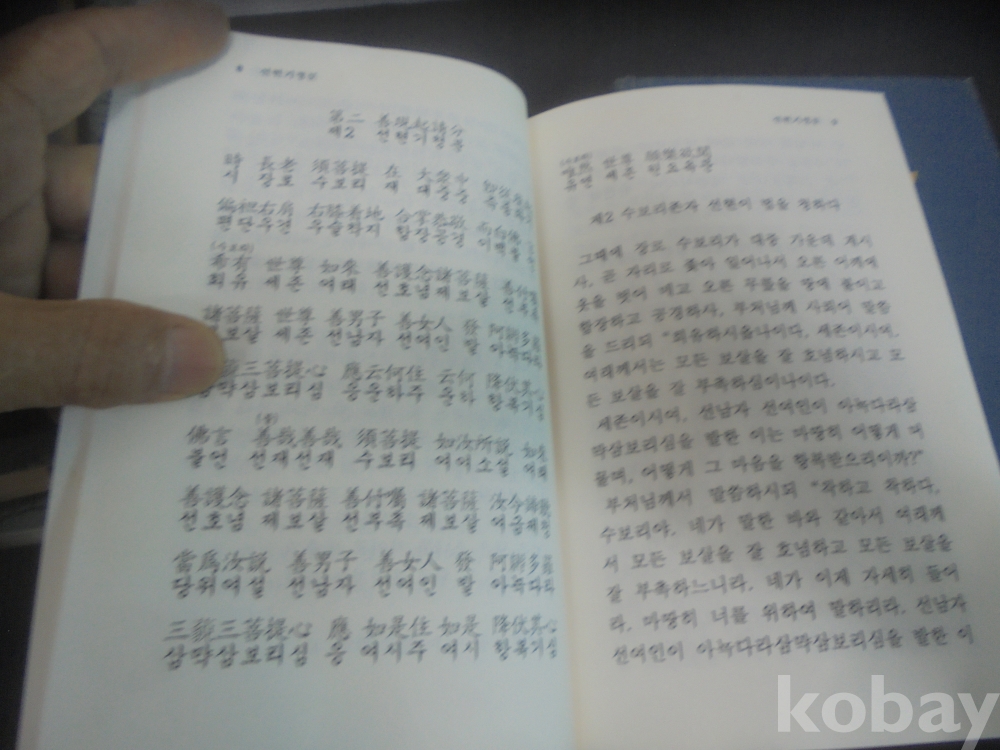 8 선현기청분
第二 善現起請分
제2 선현기청분
時 長老 須菩提 在 大衆中
시 장로 수보리 재 대중중
偏袒右肩 右膝着地 合掌恭敬 而白佛
편단우견 우슬착지 합장공경 이백불
(수보리)
希有 世尊 如來 善護念諸菩薩 善付囑
희유 세존 여래 선호념제보살 선부촉
諸菩薩 世尊 善男子 善女人 發 阿耨多羅
보살 세존 선남자 선여인 발 아녹다라
三菩提心 應云何住 云何 降伏其心
막삼보리심 응운하주 운하 항복기심
佛言 善哉善哉 須菩提 如汝所說 如來
불언 선재선재 수보리 여여소설 여래
善護念 諸菩薩 善付囑 諸菩薩 汝今諦聽
선호념 제보살 선부촉 제보살 여금제청
當爲汝說 善男子 善女人 發 阿耨多羅
당위여설 선남자 선여인 발 아녹다라
三藐三菩提心 應 如是住 如是 降伏其心
삼막삼보리심 응 여시주 여시 항복기심
선현기청분 9
(수보리)
唯然 世尊 願樂欲聞
유연 세존 원요욕문
제2 수보리존자 선현이 법을 청하다
그때에 장로 수보리가 대중 가운데 계시
사, 곧 자리로 좇아 일어나서 오른 어깨에
옷을 벗어 메고 오른 무릎을 땅에 꿇이고
합장하고 공경하사, 부처님께 사뢰어 말씀
을 드리되 "희유하시옵나이다, 세존이시여,
여래께서는 모든 보살을 잘 호념하시고 모
든 보살을 잘 부촉하십이나이다.
세존이시여, 선남자 선여인이 아녹다라삼
막삼보리심을 발한 이는 마땅히 어떻게 머
물며, 어떻게 그 마음을 항복받으리이까?"
부처님께서 말씀하시되 "착하고 착하다,
수보리야, 네가 말한 바와 같아서 여래께
서 모든 보살을 잘 호념하고 모든 보살을
잘 부촉하느니라, 네가 이제 자세히 들어
라, 마땅히 너를 위하여 말하리라, 선남자
선여인이 아녹다라삼막삼보리심을 발한 이
kobay